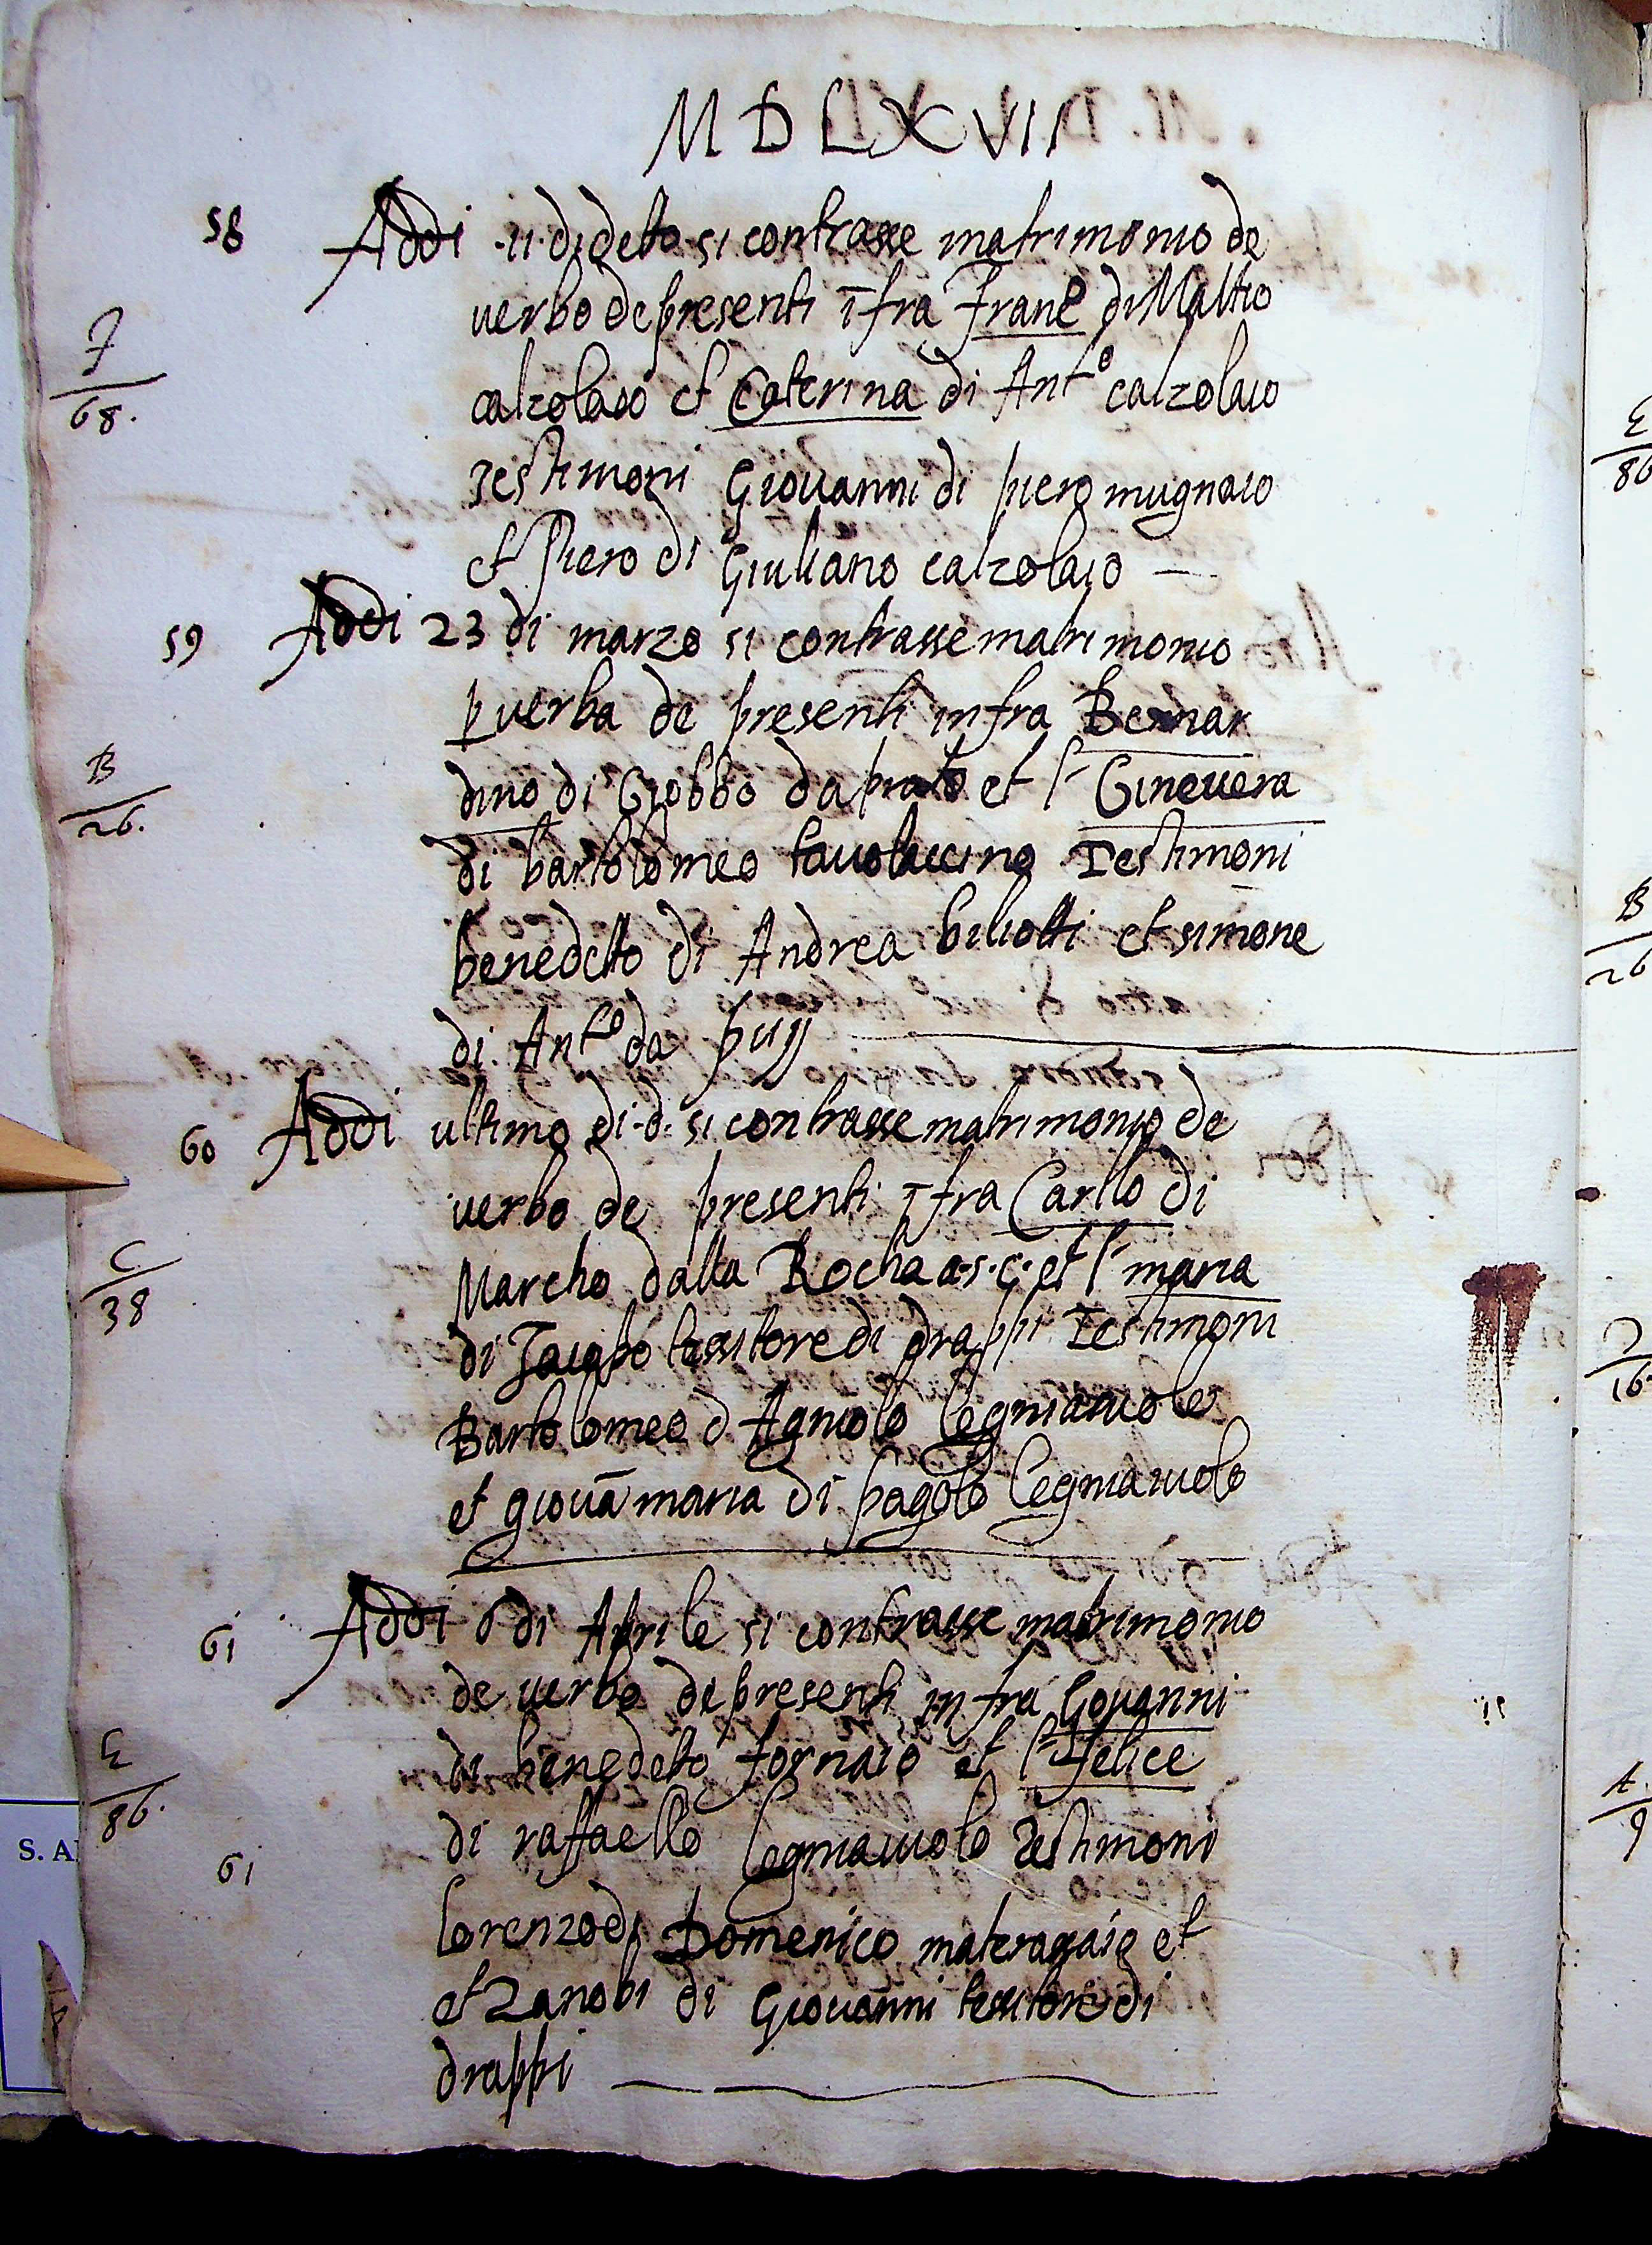 MDLXVII
58 Addi ·11· di detto si contrasse matrimonio de
verbo de presenti ĩfra Franc.º di Matteo
F
68.
calzolaio et Caterina di Ant.º calzolaio
Testimoni Giovanni di piero mugnaio
et Piero di Giuliano calzolaio —
59 Addi 23 di marzo si contrasse matrimonio
p verba de presenti infra Bernar
B
26.
dino di Giobbo da prato et l' Ginevera
di bartolomeo tavolaccino Testimoni
benedetto di Andrea biliotti et simone
di Ant.º da
60 Addi ultimo di ·d· si contrasse matrimonio de
verbo de presenti ĩfra Carllo di
C
38
Marcho dalla Rocha a·s·c· et l' maria
di Jacopo tessitore di drappi Testimoni
Bartolomeo d Agniolo legniaiuolo
et giovã maria di pagolo legniaiuolo
61 Addi 6 di Aprile si contrasse matrimonio
de verbo de presenti infra Govanni
E
86.
di benedetto fornaio et l' Felice
di raffaello legniaiuolo Testimoni
61
lorenzo di Domenico materassaio et
et Zanobi di Giovanni tessitore di
drappi —
S. A
E
86
B
26
16.
A.
9